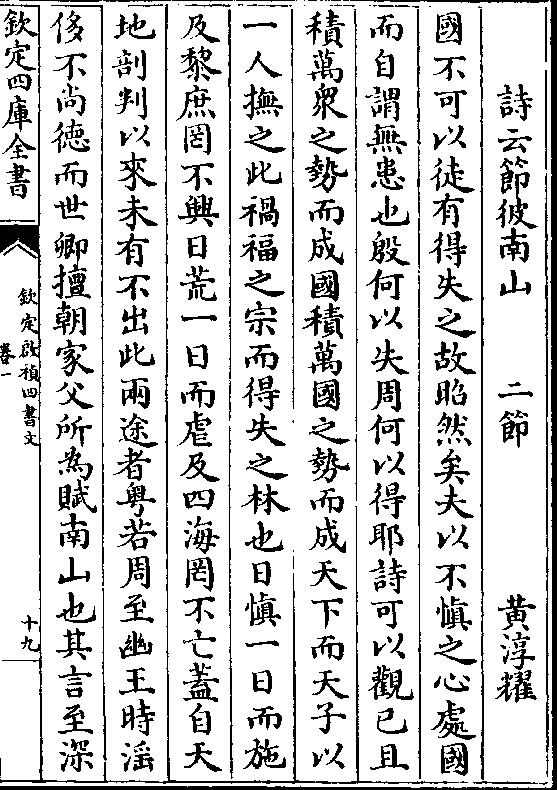 詩云節彼南山　二節　黃淳耀
國不可以徒有得失之故昭然矣夫以不慎之心處國
而自謂無患也殷何以失周何以得耶詩可以觀已且
積萬衆之勢而成國積萬國之勢而成天下而天子以
一人撫之此禍福之宗而得失之林也日慎一日而施
及黎庶罔不興日荒一日而虐及四海罔不亡蓋自天
地剖判以來未有不出此兩途者粤若周至幽王時滛
侈不尚德而世卿擅朝家父所為賦南山也其言至深
欽定四庫全書
欽定啟禎四書文
卷一
十九